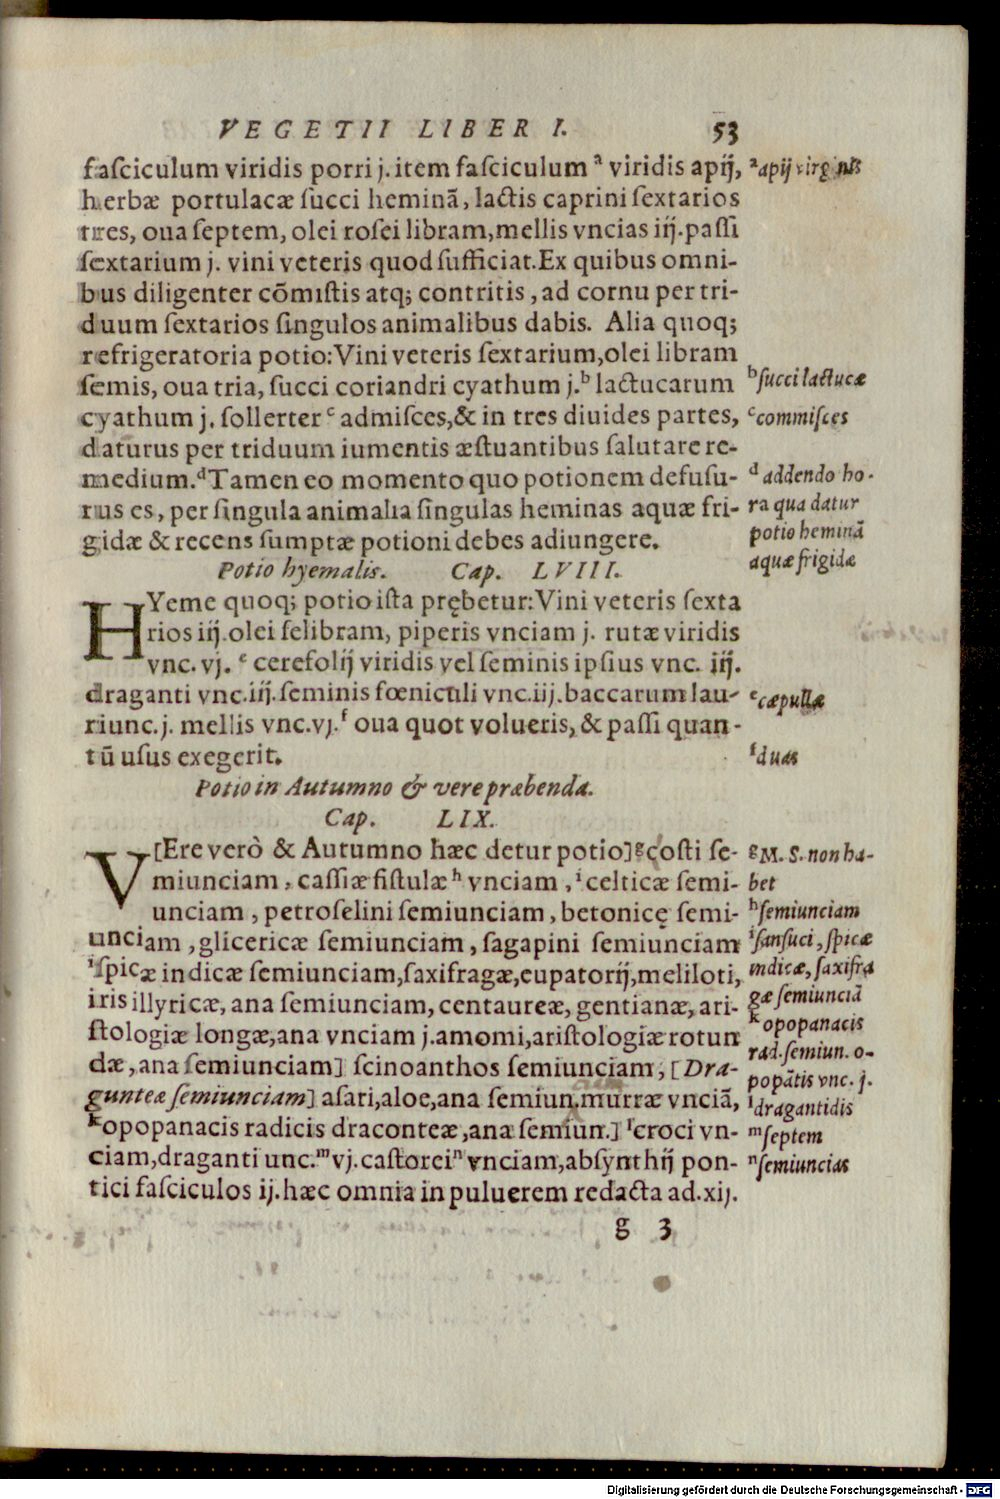 VEGETII LIBER I. 53
faſciculum viridis porri j. item faſciculum ᵃ viridis apij,
herbæ portulacæ ſucci heminā, lactis caprini ſextarios
tres, oua ſeptem, olei roſei libram, mellis vncias iij. paſſi
ſextarium j. vini veteris quod ſufficiat. Ex quibus omni-
bus diligenter cōmiſtis atq; contritis, ad cornu per tri-
duum ſextarios ſingulos animalibus dabis. Alia quoq;
refrigeratoria potio: Vini veteris ſextarium, olei libram
ſemis, oua tria, ſucci coriandri cyathum j. ᵇ lactucarum
cyathum j. ſollerter ᶜ admiſces, & in tres diuides partes,
daturus per triduum iumentis æſtuantibus ſalutare re-
medium. ᵈ Tamen eo momento quo potionem defuſu-
rus es, per ſingula animalia ſingulas heminas aquæ fri-
gidæ & recens ſumptæ potioni debes adiungere.
ᵃ apij
ᵇ ſucci lactucæ
ᶜ commiſces
ᵈ addendo ho-
ra qua datur
potio heminā
aquæ frigidæ
Potio hyemalis. Cap. LVIII.
HYeme quoq; potio iſta prębetur: Vini veteris ſexta
rios iij. olei ſelibram, piperis vnciam j. rutæ viridis
vnc. vj. ᵉ cerefolij viridis vel ſeminis ipſius vnc. iij.
draganti vnc. iij. ſeminis fœniculi vnc. iij. baccarum lau-
riunc. j. mellis vnc. vj. ᶠ oua quot volueris, & paſſi quan-
tū uſus exegerit.
ᵉ cæpullæ
ᶠ duas
Potio in Autumno & vere præbenda.
Cap. LIX.
V[Ere verò & Autumno hæc detur potio] ᵍ coſti ſe-
miunciam, caſſiæ fiſtulæ ʰ vnciam, ⁱ celticæ ſemi-
unciam, petroſelini ſemiunciam, betonicę ſemi-
unciam, glicericæ ſemiunciam, ſagapini ſemiunciam
ⁱ ſpicæ indicæ ſemiunciam, ſaxifragæ, eupatorij, meliloti,
iris illyricæ, ana ſemiunciam, centaureæ, gentianæ, ari-
ſtologiæ longæ, ana vnciam j. amomi, ariſtologiæ rotun
dæ, ana ſemiunciam] ſcinoanthos ſemiunciam, [Dra-
gunteæ ſemiunciam] aſari, aloe, ana ſemiun. murræ vnciā,
ᵏ opopanacis radicis draconteæ, ana ſemiun.] ˡ croci vn-
ciam, draganti unc. ᵐ vj. caſtorei ⁿ vnciam, abſynthij pon-
tici faſciculos ij. hæc omnia in puluerem redacta ad. xij.
ᵍ M. S. non ha-
bet
ʰ ſemiunciam
ⁱ ſanſuci, ſpicæ
indicæ, ſaxifra
gæ ſemiunciā
ᵏ opopanacis
rad. ſemiun. o-
popātis vnc. j.
ˡ dragantidis
ᵐ ſeptem
ⁿ ſemiuncias
g 3
Digitalisierung gefördert durch die Deutsche Forschungsgemeinschaft - DFG